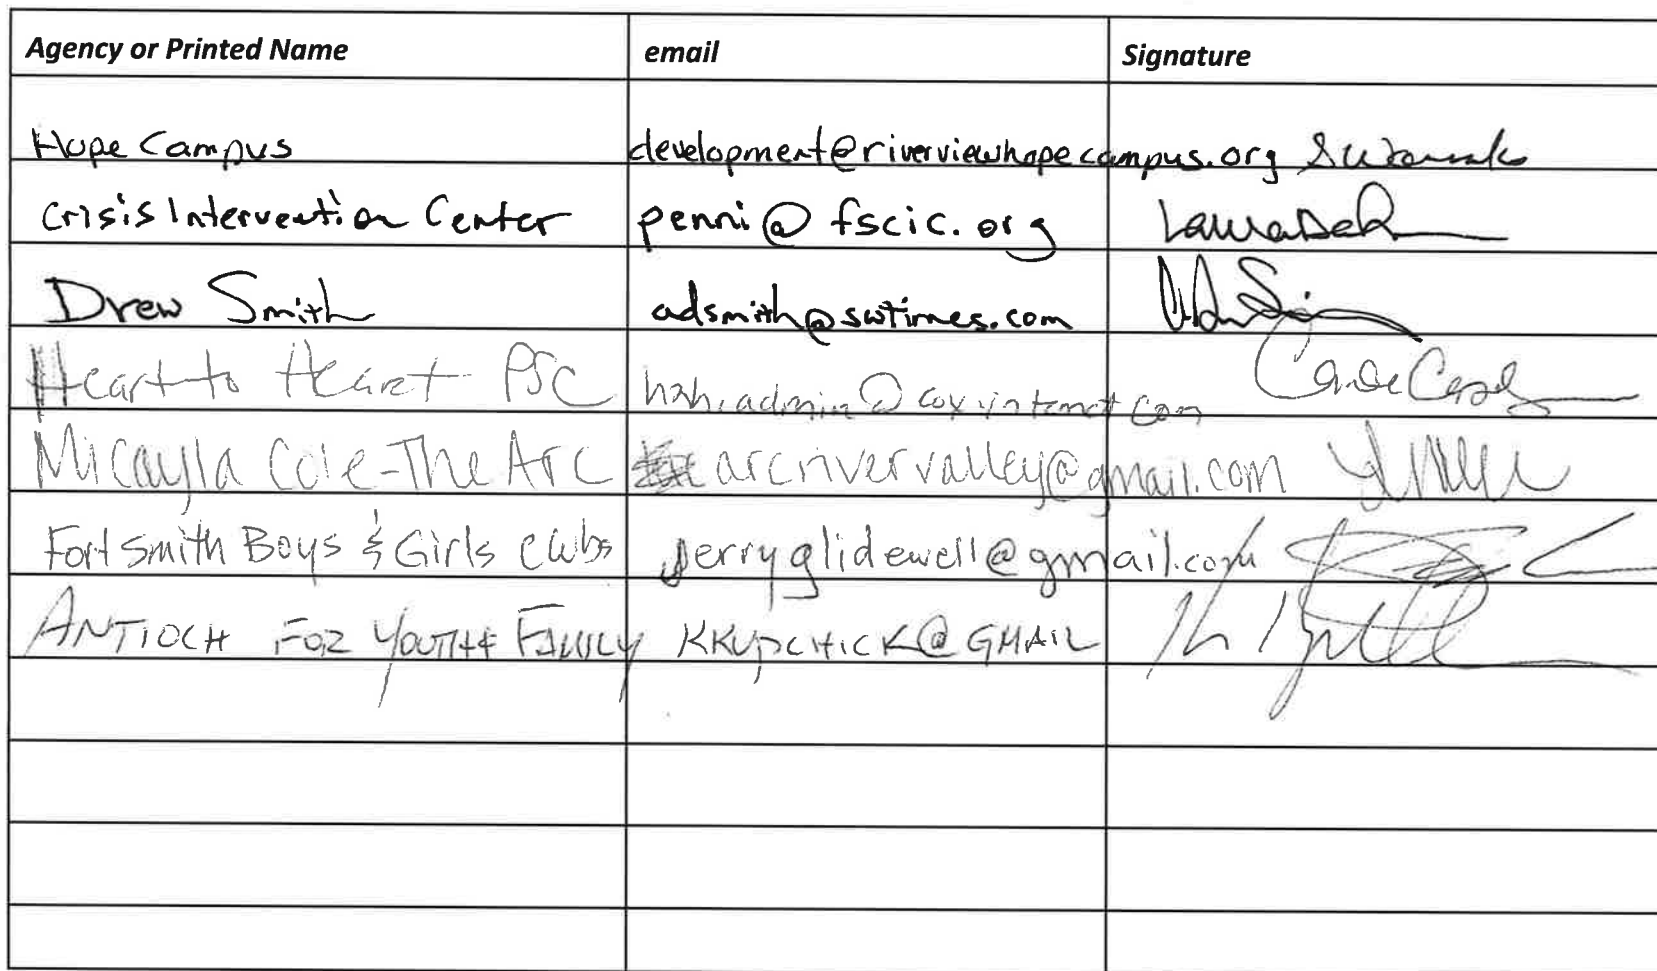 Agency or Printed Name email Signature
Hope Campus development@riverviewhopecampus.org
Crisis Intervention Center penni@fscic.org
Drew Smith adsmith@swtimes.com
Heart to Heart PSC
Micayla Cole-The Arc arcrivervalley@gmail.com
Fort Smith Boys & Girls Clubs jerryglidewell@gmail.com
ANTIOCH FOR YOUTH & FAMILY KKUPCHICK@GMAIL